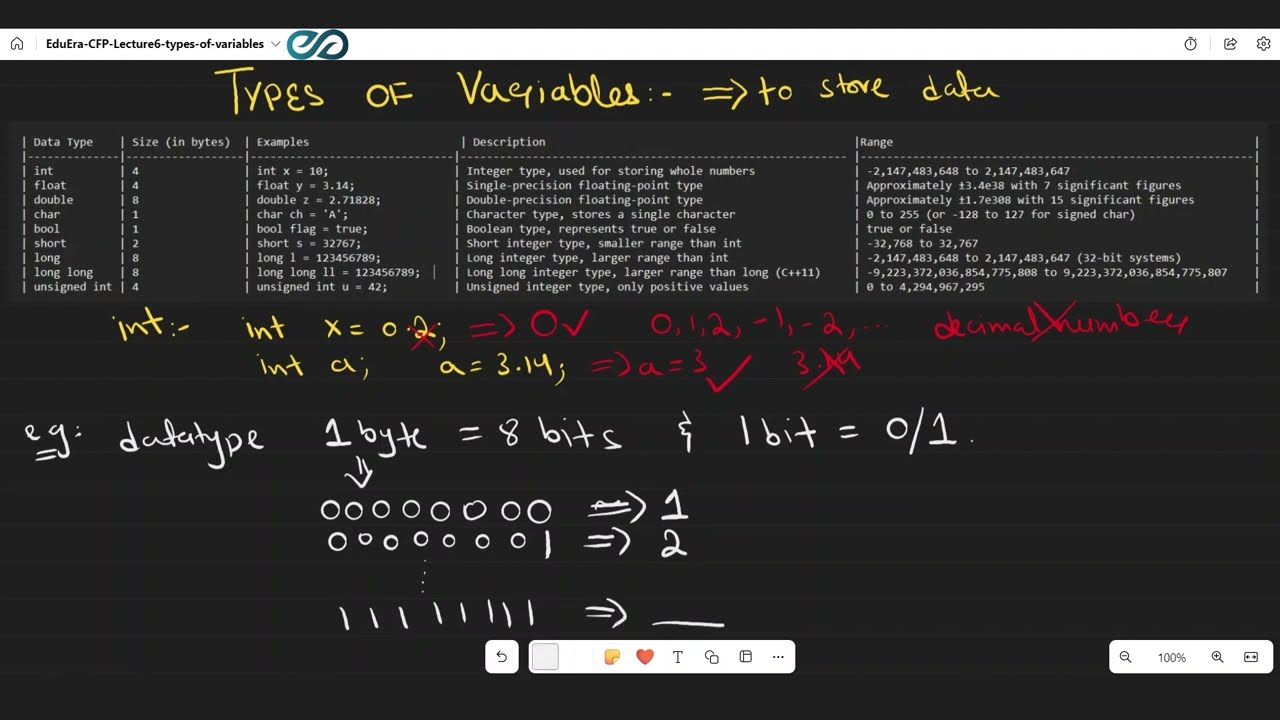 EduEra-CFP-Lecture6-types-of-variables
TYPES OF Variables:- => to store data
| Data Type | Size (in bytes) | Examples | Description |Range |
|------------|-----------------|----------------------------|------------------------------------------------------|------------------------------------------------------|
| int | 4 | int x = 10; | Integer type, used for storing whole numbers | -2,147,483,648 to 2,147,483,647 |
| float | 4 | float y = 3.14; | Single-precision floating-point type | Approximately ±3.4e38 with 7 significant figures |
| double | 8 | double z = 2.71828; | Double-precision floating-point type | Approximately ±1.7e308 with 15 significant figures |
| char | 1 | char ch = 'A'; | Character type, stores a single character | 0 to 255 (or -128 to 127 for signed char) |
| bool | 1 | bool flag = true; | Boolean type, represents true or false | true or false |
| short | 2 | short s = 32767; | Short integer type, smaller range than int | -32,768 to 32,767 |
| long | 8 | long l = 123456789; | Long integer type, larger range than int | -2,147,483,648 to 2,147,483,647 (32-bit systems) |
| long long | 8 | long long ll = 123456789; | Long long integer type, larger range than long (C++11) | -9,223,372,036,854,775,808 to 9,223,372,036,854,775,807 |
| unsigned int | 4 | unsigned int u = 42; | Unsigned integer type, only positive values | 0 to 4,294,967,295 |
int:- int x = 0.2; => 0 ✓ 0,1,2,-1,-2,... decimal number
int a; a = 3.14; => a = 3 ✓ 3.14
eg: datatype 1 byte = 8 bits & 1 bit = 0/1.
0 0 0 0 0 0 0 0 => 1
0 0 0 0 0 0 0 1 => 2
1 1 1 1 1 1 1 1 => __
T
100%